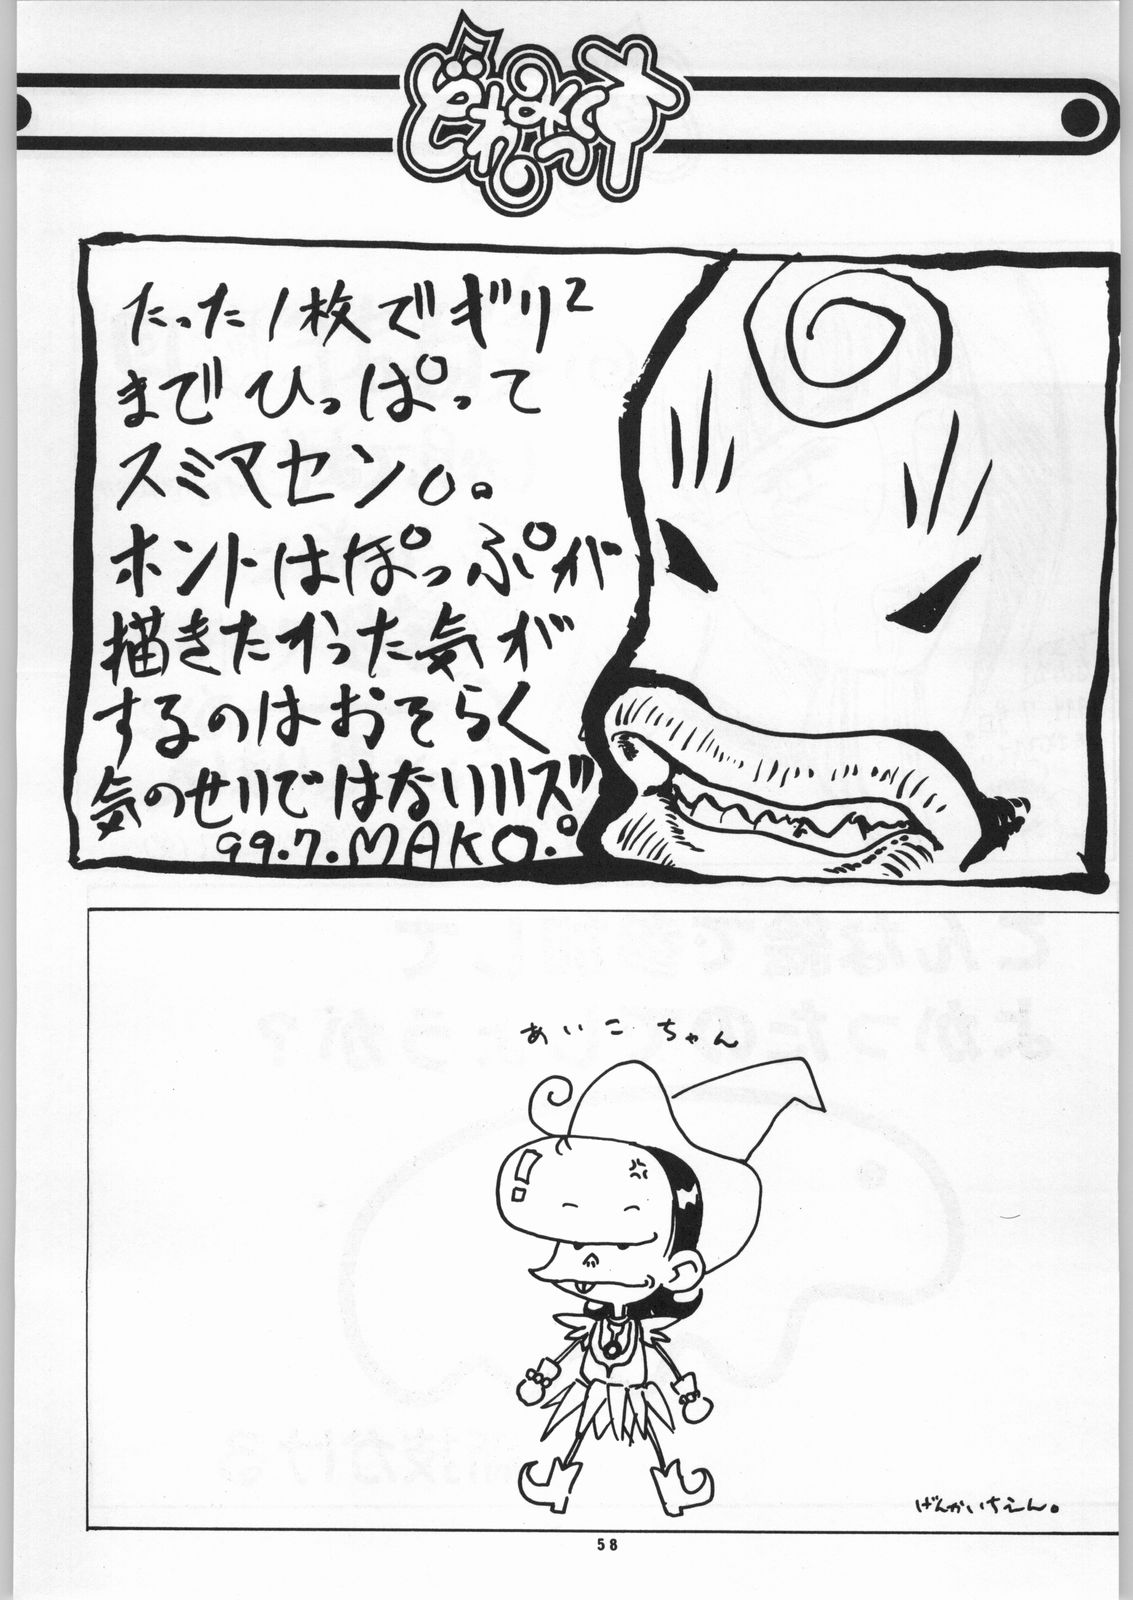 どれみっ子
たった1枚でギリ2
までひっぱって
スミマセン。
ホントはぽっぷが
描きたかった気が
するのはおそらく
気のせいではない
99.7.MAKO.
あいこちゃん
げんかいちえん。
58